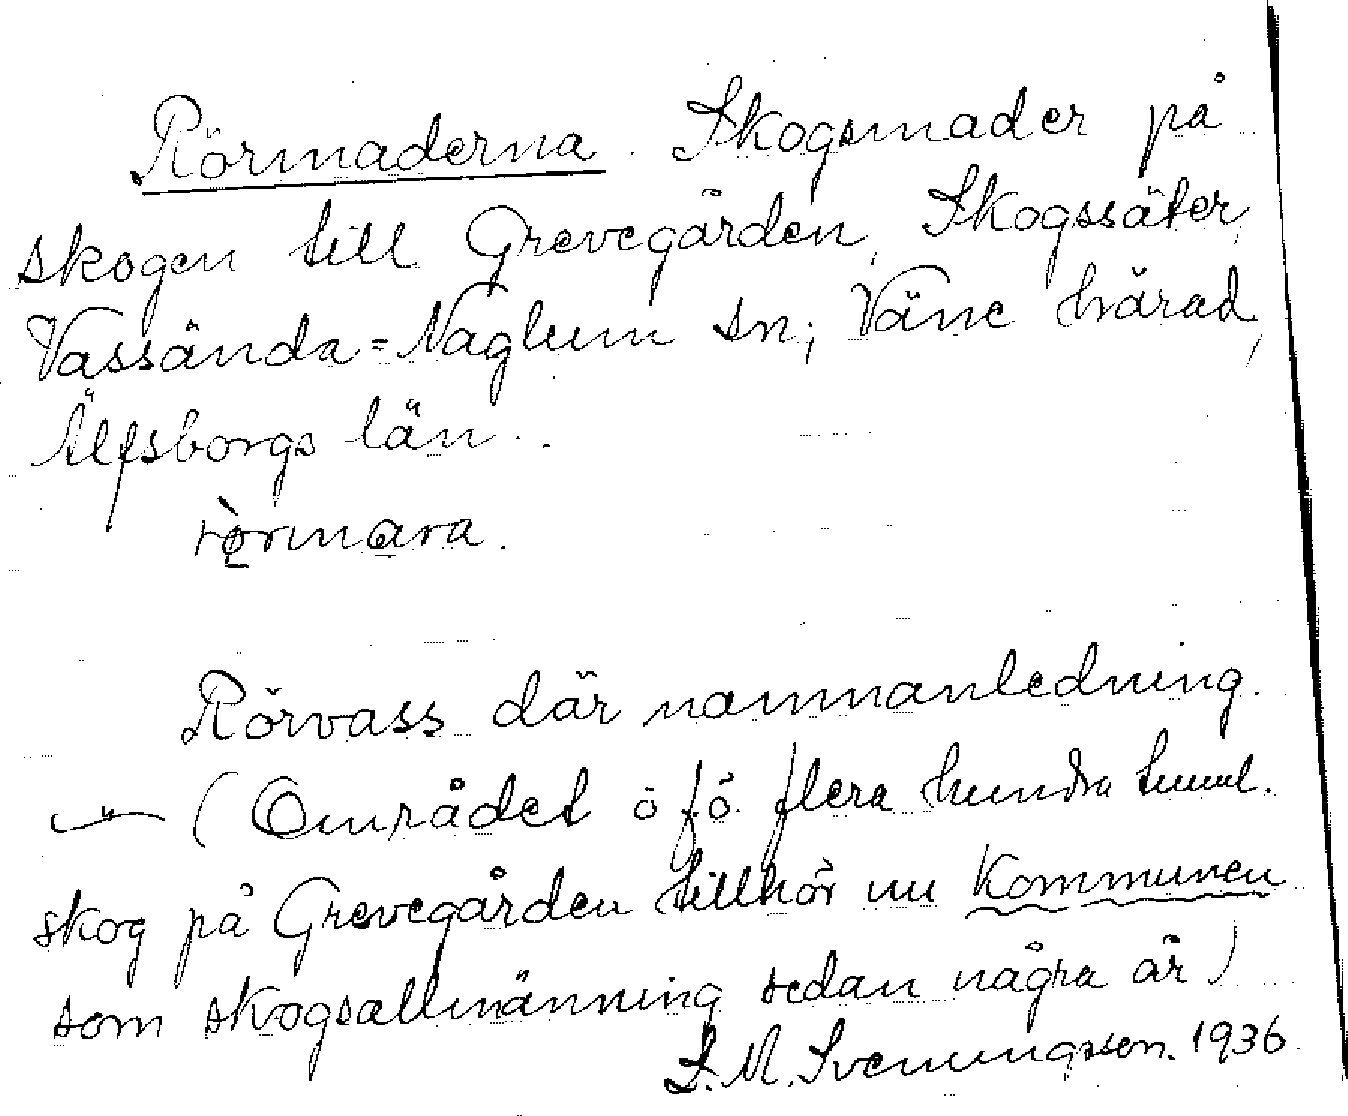 Rörmaderna. Skogsmader på
skogen till Grevegården, Skogssäter,
Vassända-Naglum sn; Väne härad,
Älfsborgs län.
rörmara.
Rörvass där namnanledning.
(Området ö fö flera hundra tunnl.
skog på Grevegården tillhör nu Kommunen
som skogsallmänning sedan några år)
S. M. Svenungsson. 1936